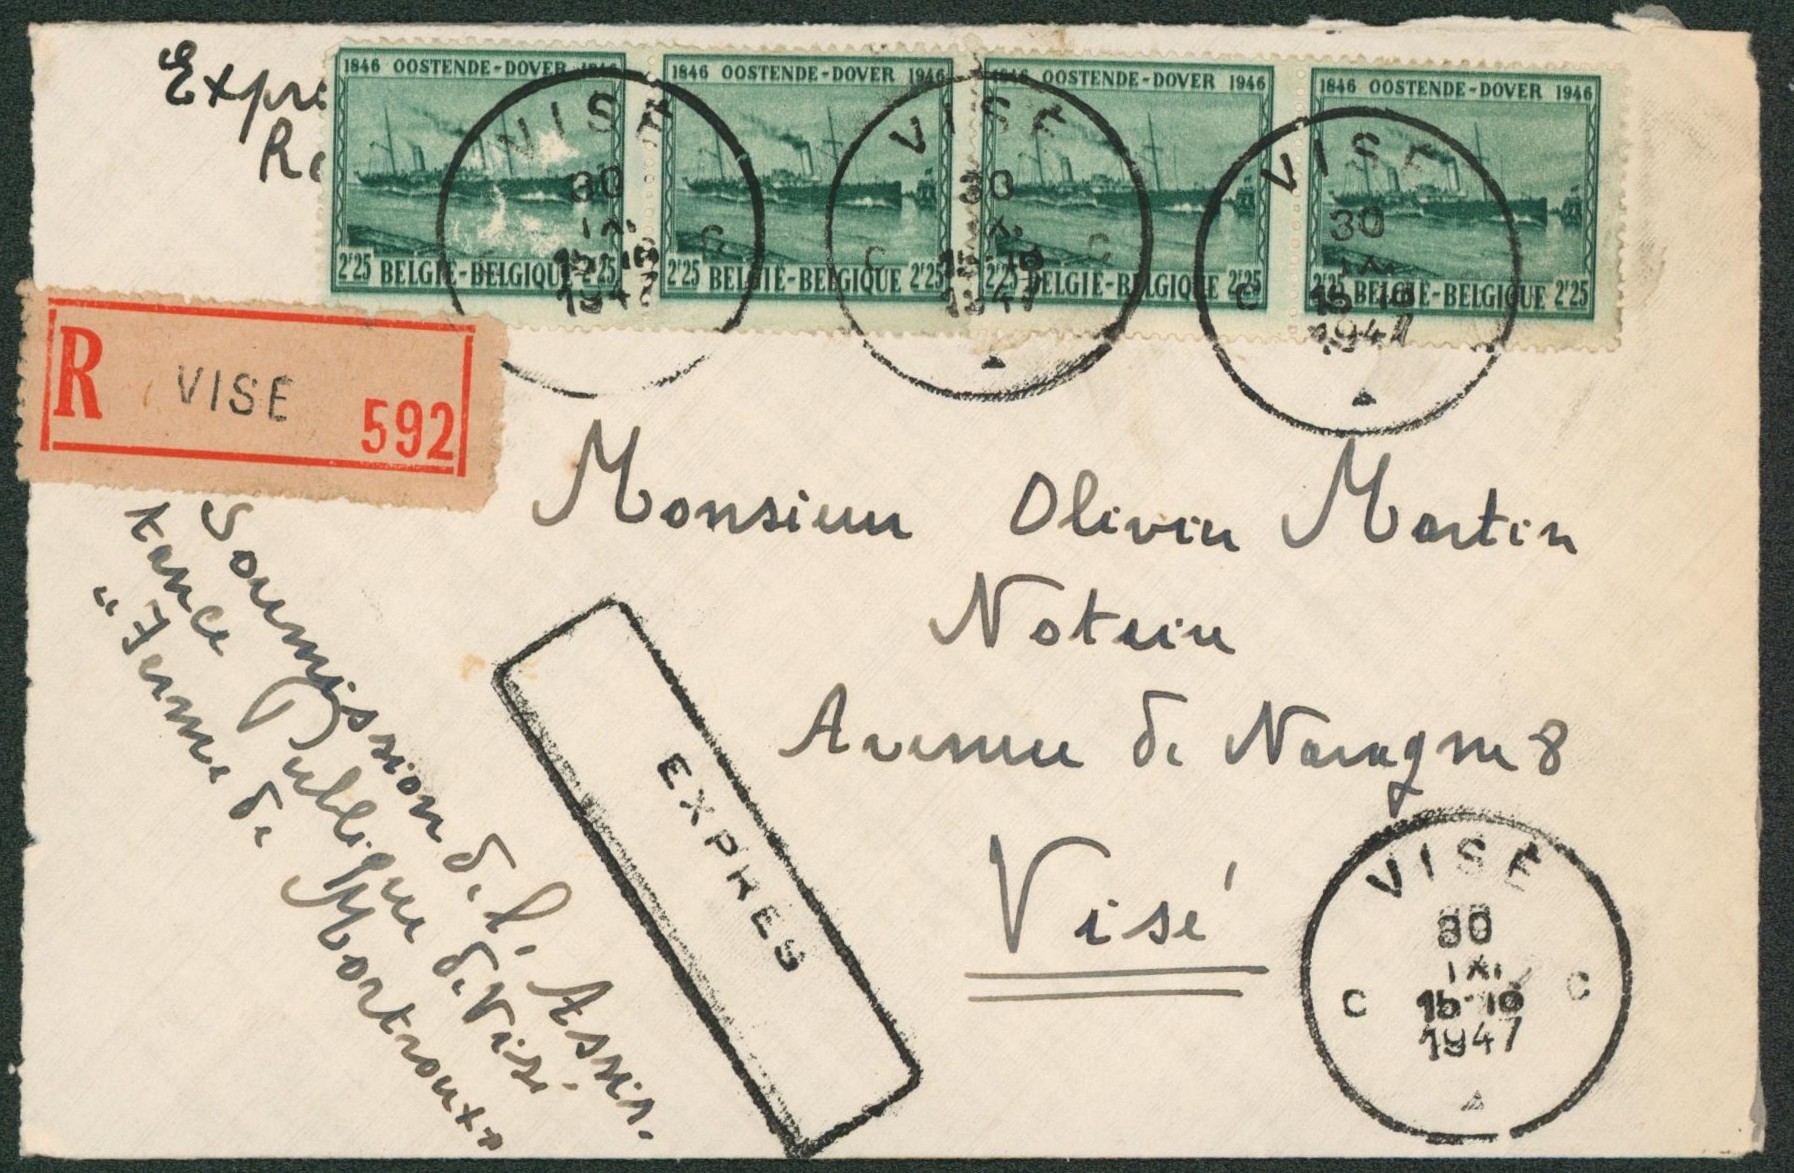 Expr
Re
1846 OOSTENDE-DOVER 1946
2F25 BELGIE-BELGIQUE 2F25
1846 OOSTENDE-DOVER 1946
2F25 BELGIE-BELGIQUE 2F25
1846 OOSTENDE-DOVER 1946
2F25 BELGIE-BELGIQUE 2F25
1846 OOSTENDE-DOVER 1946
2F25 BELGIE-BELGIQUE 2F25
VISE
30
1947
C
VISE
30
1947
C C
VISE
30
1947
C
R VISE 592
Monsieur Olivier Martin
Notaire
Avenue de Navagne 8
Visé
Soumission de l'Assis-
tance Publique de Visé
"Ferme de Mortroux"
EXPRES
VISE
30
XI
15-16
1947
C C